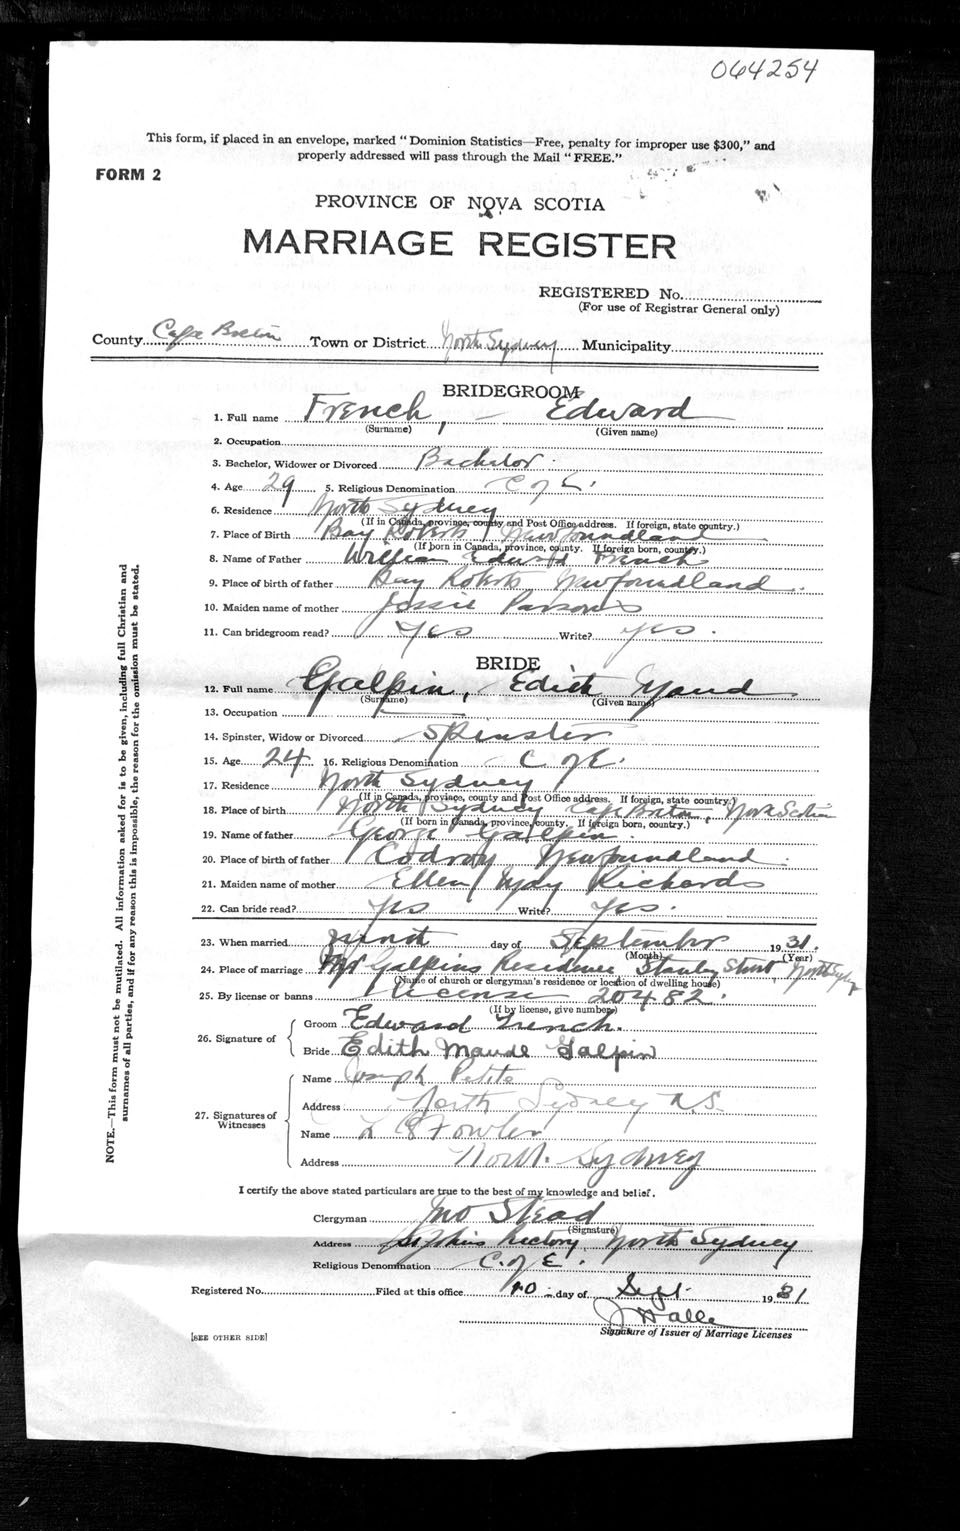 064254
This form, if placed in an envelope, marked "Dominion Statistics—Free, penalty for improper use $300," and
properly addressed will pass through the Mail "FREE."
FORM 2
PROVINCE OF NOVA SCOTIA
MARRIAGE REGISTER
REGISTERED No.
(For use of Registrar General only)
County Cape Breton Town or District North Sydney Municipality
BRIDEGROOM
1. Full name French, Edward
(Surname) (Given name)
2. Occupation
3. Bachelor, Widower or Divorced Bachelor.
4. Age 29 5. Religious Denomination C of E.
6. Residence North Sydney
(If in Canada, province, county and Post Office address. If foreign, state country.)
7. Place of Birth Bay Roberts Newfoundland
(If born in Canada, province, county. If foreign born, country.)
8. Name of Father William Edward French
9. Place of birth of father Bay Roberts Newfoundland.
10. Maiden name of mother Jessie Parsons
11. Can bridegroom read? Yes Write? yes.
BRIDE
12. Full name Galpin, Edith Maud
(Surname) (Given name)
13. Occupation
14. Spinster, Widow or Divorced Spinster
15. Age 24 16. Religious Denomination C of E.
17. Residence North Sydney
(If in Canada, province, county and Post Office address. If foreign, state country.)
18. Place of birth North Sydney Cape Breton, Nova Scotia
(If born in Canada, province, county. If foreign born, country.)
19. Name of father George Galpin.
20. Place of birth of father Codroy Newfoundland.
21. Maiden name of mother Ellen May Richards
22. Can bride read? Yes Write? Yes.
23. When married day of September 1931.
(Month) (Year)
24. Place of marriage Mr Galpins Residence Stanley Street, North Sydney
(Name of church or clergyman's residence or location of dwelling house)
25. By license or banns License 20482.
(If by license, give number)
26. Signature of
Groom Edward French.
Bride Edith Maude Galpin
27. Signatures of Witnesses
Name Joseph Petite
Address North Sydney N.S.
Name Fowler
Address North Sydney
I certify the above stated particulars are true to the best of my knowledge and belief.
Clergyman Jno Stead
(Signature)
Address St Johns Rectory, North Sydney
Religious Denomination C. of E.
Registered No. Filed at this office 10 day of Sept. 1931
Signature of Issuer of Marriage Licenses
[SEE OTHER SIDE]
NOTE.—This form must not be mutilated. All information asked for is to be given, including full Christian and
surnames of all parties, and if for any reason this is impossible, the reason for the omission must be stated.